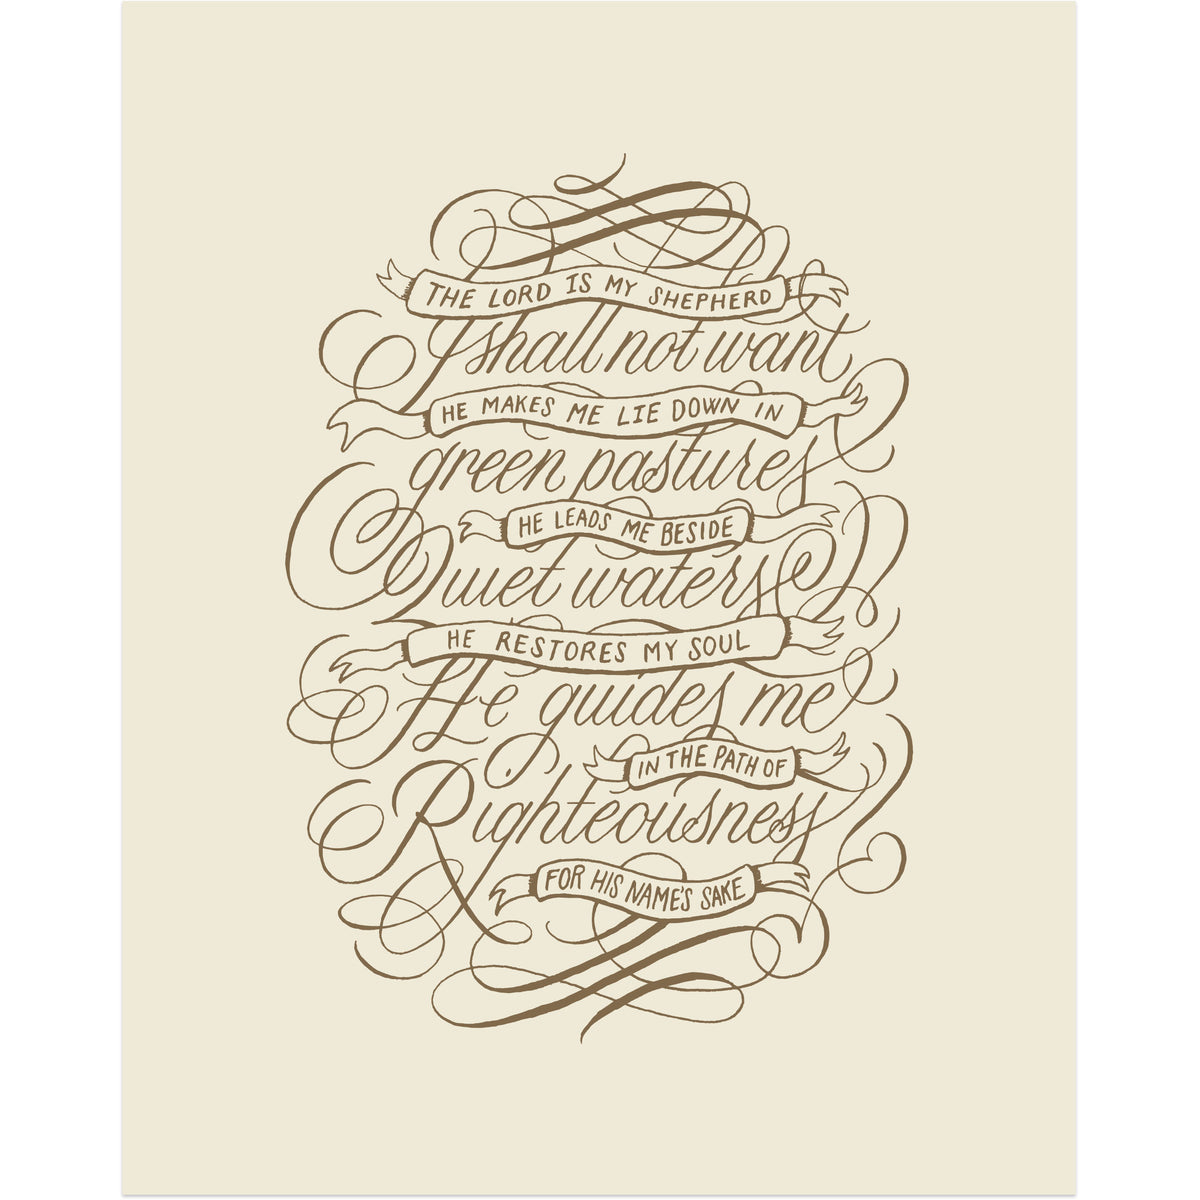 THE LORD IS MY SHEPHERD
I shall not want
HE MAKES ME LIE DOWN IN
green pastures
HE LEADS ME BESIDE
Quiet waters
HE RESTORES MY SOUL
He guides me
IN THE PATH OF
Righteousness
FOR HIS NAME'S SAKE